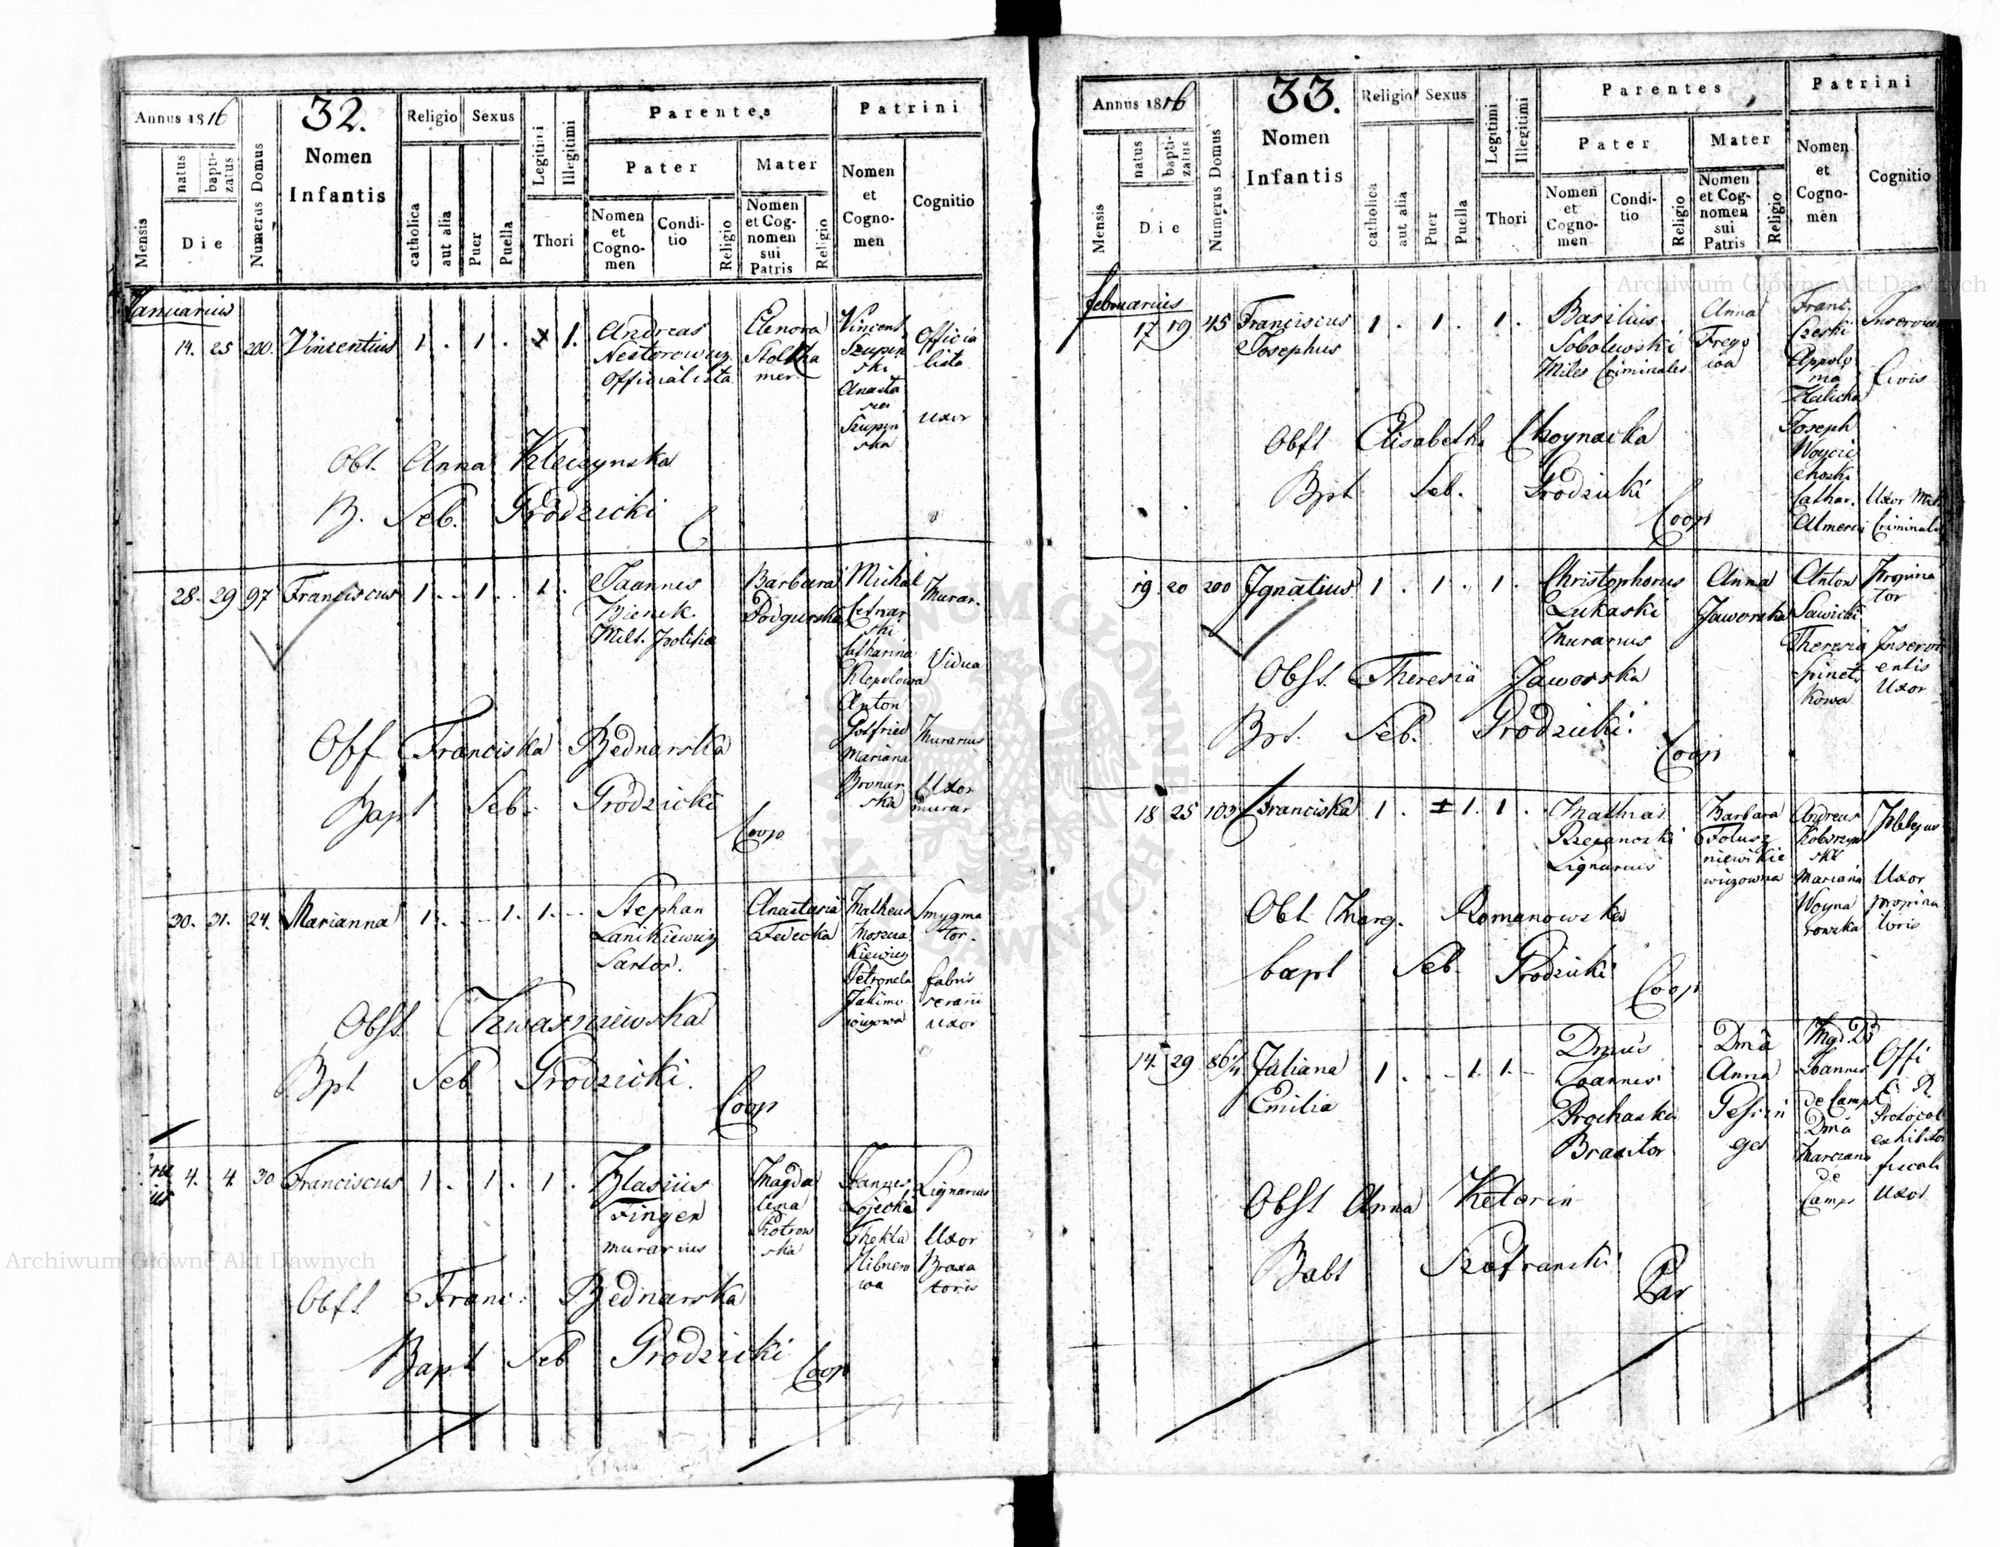 Annus 1816
32.
Religio
Sexus
Legitimi
Illegitimi
Parentes
Patrini
Mensis
natus
bapti-
zatus
Die
Numerus Domus
Nomen
Infantis
catholica
aut alia
Puer
Puella
Thori
Pater
Mater
Nomen
et
Cogno-
men
Condi-
tio
Religio
Nomen
et Cog-
nomen
sui
Patris
Religio
Nomen
et
Cogno-
men
Cognitio
Januarius
14. 25 200. Vincentius 1 . 1 . 1.
Andreas
Nestorowicz
Officialista
Elenora
Vincent
Szupin
ski
Anasta
sia
Szupin
ska
Officia
lista
Uxor
Obt. Anna Kleczynska
B. Seb. Grodzicki
28. 29 97 Franciscus 1 . . 1 . 1 .
Joannes
Bienek
Milt. Politiae
Barbara
Podgurska
Michal
Catharina
Klepelowa
Anton
Gotfried
Mariana
Bronar
ska
Murar.
Vidua
Murarius
Uxor
murar
Obst Franciska Bednarska
Bapt Seb. Grodzicki
Coop
30. 31. 24. Marianna 1 . . 1. 1. .
Stephan
Sartor.
Anastasia
Fedecka
Matheus
Moszua
kiewicz
Petronela
Jakimo
wiczowa
Smygma
tor.
fabri
ferarii
Uxor
Obst. Kwasniewska
Bpt Seb Grodzicki.
Coop
4. 4 30 Franciscus 1 . 1 . 1 .
Blasius
Finger
murarius
Magda
lena
Piotrow
ska
Joannes
Łojecka
Thekla
Hibnero
wa
Lignarius
Uxor
Braxa
toris
Obst Franc: Bednarska
Bapt Seb Grodzicki
Coop
Annus 1816
33.
Religio
Sexus
Legitimi
Illegitimi
Parentes
Patrini
Mensis
natus
bapti-
zatus
Die
Numerus Domus
Nomen
Infantis
catholica
aut alia
Puer
Puella
Thori
Pater
Mater
Nomen
et
Cogno-
men
Condi-
tio
Religio
Nomen
et Cog-
nomen
sui
Patris
Religio
Nomen
et
Cogno-
men
Cognitio
februarius
17 19 45 Franciscus 1 . 1 . 1 .
Josephus
Basilius
Sobolewski
Miles Criminales
Anna
Frego
wa
Frant.
Czeski
Appolo
nia
Halicka
Joseph
Woycie
choski
Cathar.
Almeroi
Civis
Uxor Mil
Criminalis
Obst Elisabetha Choynacka
Bpt Seb. Grodzicki
Coop
19 20 200 Ignatius 1 . 1 . 1 .
Christophorus
Lukaski
Murarius
Anna
Jaworska
Anton
Sawicki
Theresia
Spinet
kowa
Propina
tor
Inservi
entis
Uxor
Obst. Theresia Jaworska
Bpt. Seb. Grodzicki.
Coop
18 25 103 Franciska 1 . 1. 1 .
Mathias
Rzepanczki
Lignarius
Barbara
Andreas
Kobrzyn
ski
Mariana
Woyna
rowska
Plebejus
Uxor
propina
toris
Obt. Marg. Romanowska
bapt Seb. Grodzicki
Coop
14. 29 86/4 Juliana 1 . . 1. 1. .
Emilia
Dnus
Joannes
Prochaska
Braxitor
Dmâ
Anna
Mgd. D
Joannes
de Camps
Dma
Marciana
de
Camps
Offi
C. R.
Protocol
exhibito
fiscal
Uxor
Obst Anna Keterin
Babt Szafranski
Par
Archiwum Główne Akt Dawnych
Archiwum Główne Akt Dawnych
ARCHIWUM GŁÓWNE AKT DAWNYCH